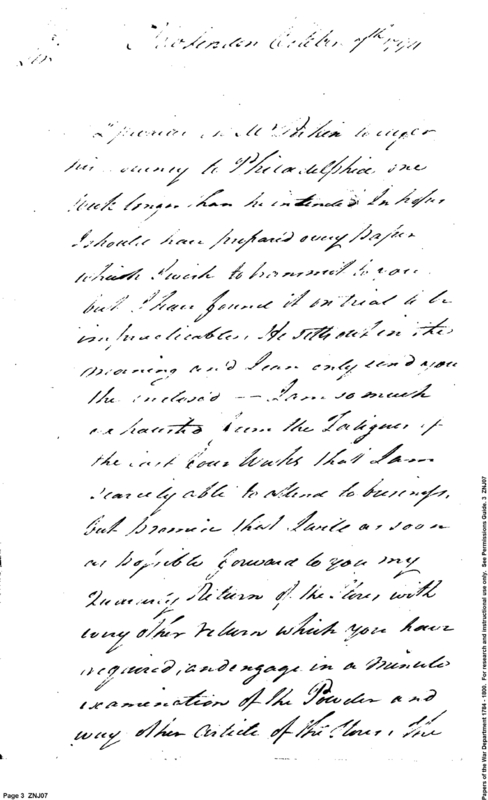 Sir
New London October 7th 1794
Mr to defer
his Journey to Philadelphia one
Week longer than he intended In hopes
I should have prepared every paper
which I wish to transmit to you
but I have found it on trial to be
impracticable. He setts out in the
morning and I can only send you
the inclosed — I am so much
exhausted from the Fatigues of
the last four Weeks that I am
scarcely able to attend to business,
but promise that I will as soon
as possible forward to you my
Return of the Stores with
every other return which you have
required, and engage in a minute
examination of the Powder and
every other article of the Stores. The
Page 3 ZNJ07
Papers of the War Department 1784 - 1800. For research and instructional use only. See Permissions Guide. 3 ZNJ07